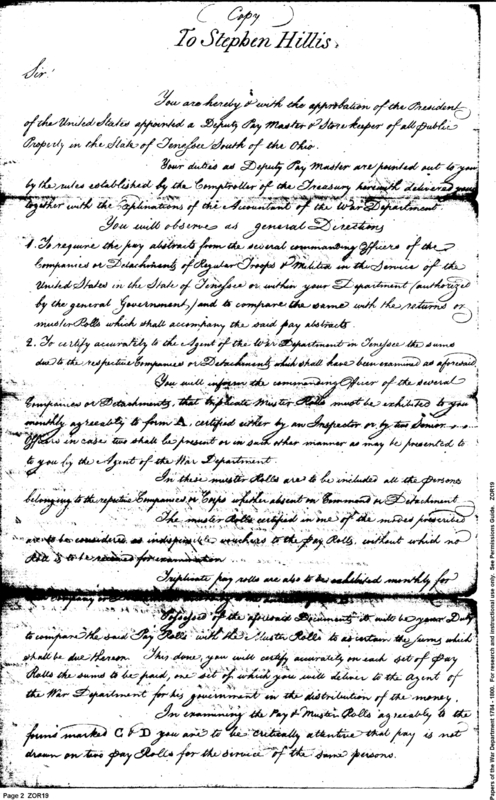 (Copy)
To Stephen Hillis.
Sir
You are hereby & with the approbation of the President
of the United States appointed a Deputy Pay Master & Store keeper of all public
Property in the State of Tenessee South of the Ohio.
Your duties as Deputy Pay Master are pointed out to you
by the rules established by the Comptroller of the Treasury herewith delivered you
together with the Explinations of the Accountant of the War Department
You will observe as general Directions
1. To require the pay abstracts form the several commanding Officers of the
Companies or Detachments of Regular Troops & Militia in the Service of the
United States in the State of Tenessee or within your Department (authorized
by the general Government,) and to compare the same with the returns or
muster Rolls which shall accompany the said pay abstracts.
2. To certify accurately to the Agent of the War Department in Tenessee the sums
due to the respective Companies or Detachments which shall have been examined as aforesaid.
You will inform the commanding Officer of the several
Companies or Detachments, that triplicate Muster Rolls must be exhibited to you
monthly agreeably to form A, certified either by an Inspector or by two Senior
Officers in case two shall be present or in such other manner as may be presented to
to you by the Agent of the War Department.
In these muster Rolls are to be included all the Persons
belonging to the Companies or Corps whether absent on Command or Detachment
The muster Rolls certified in one of the modes prescribed
are to be considered as indispensible vouchers to the Pay Rolls, without which no
Roll is to be received for examination
Triplicate pay rolls are also to be exhibited monthly for
Possessed of the aforesaid Documents it will be your Duty
to compare the said Pay Rolls with the Muster Rolls to ascertain the sums which
shall be due thereon. This done, you will certify accurately on each set of Pay
Rolls the sums to be paid, one set of which you will deliver to the Agent of
the War Department for his government in the distribution of the money.
In examining the Pay & Muster Rolls agreeably to the
forms marked C & D you are to be critically attentive that pay is not
drawn on two Pay Rolls for the service of the same persons.
Page 2 ZOR19
Papers of the War Department 1784 - 1800. For research and instructional use only. See Permissions Guide. ZOR19